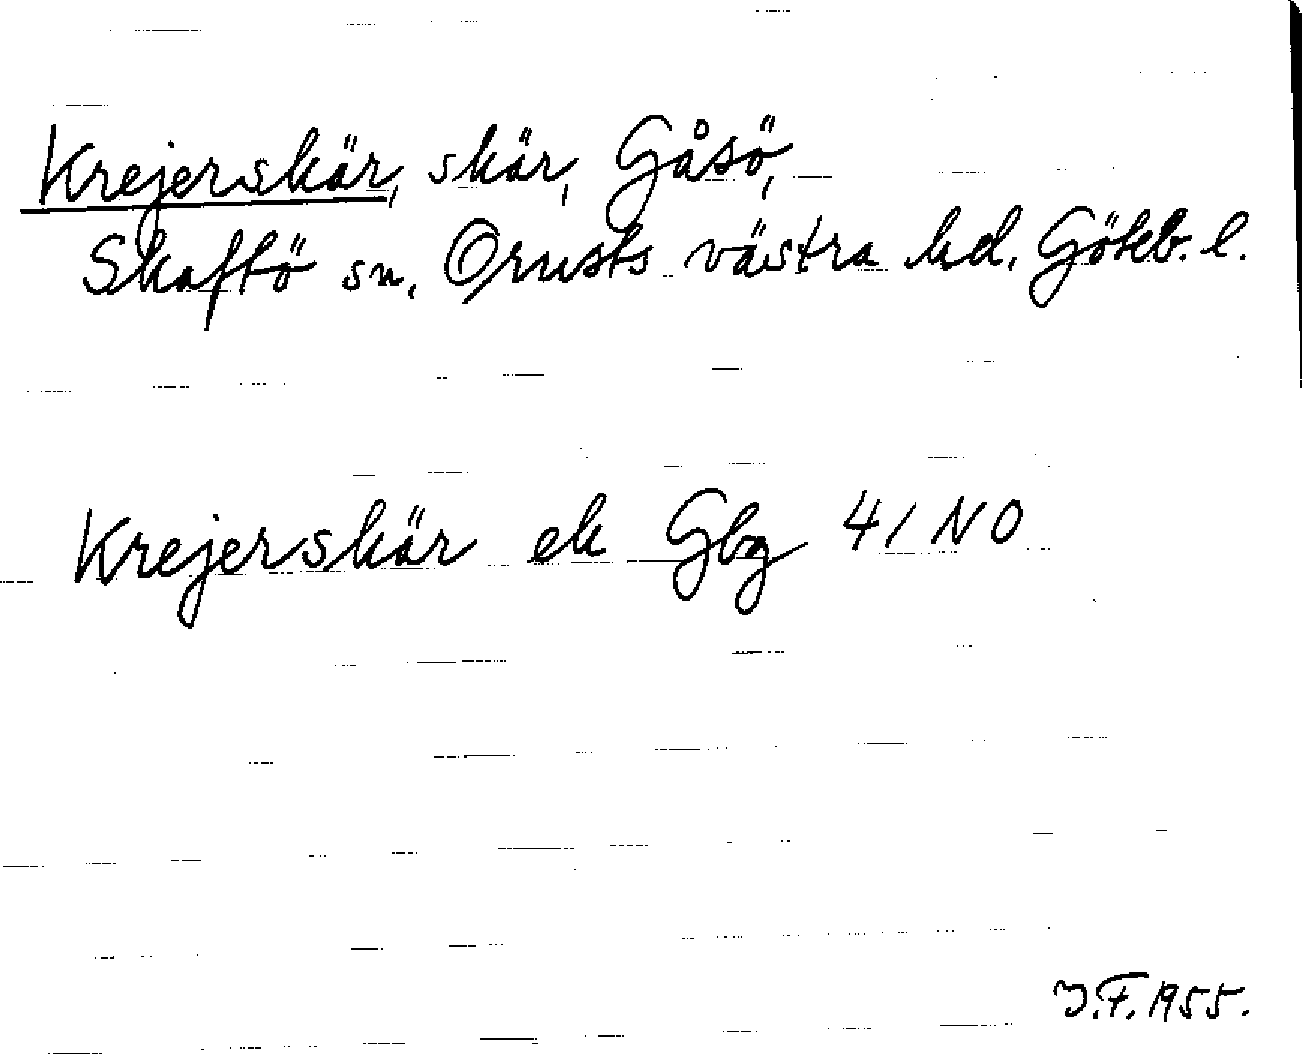 Krejerskär, skär, Gåsö,
Skaftö sn, Orusts västra hd, Göteb. l.
Krejerskär ek Gbg 41 NO
J.F. 1955.